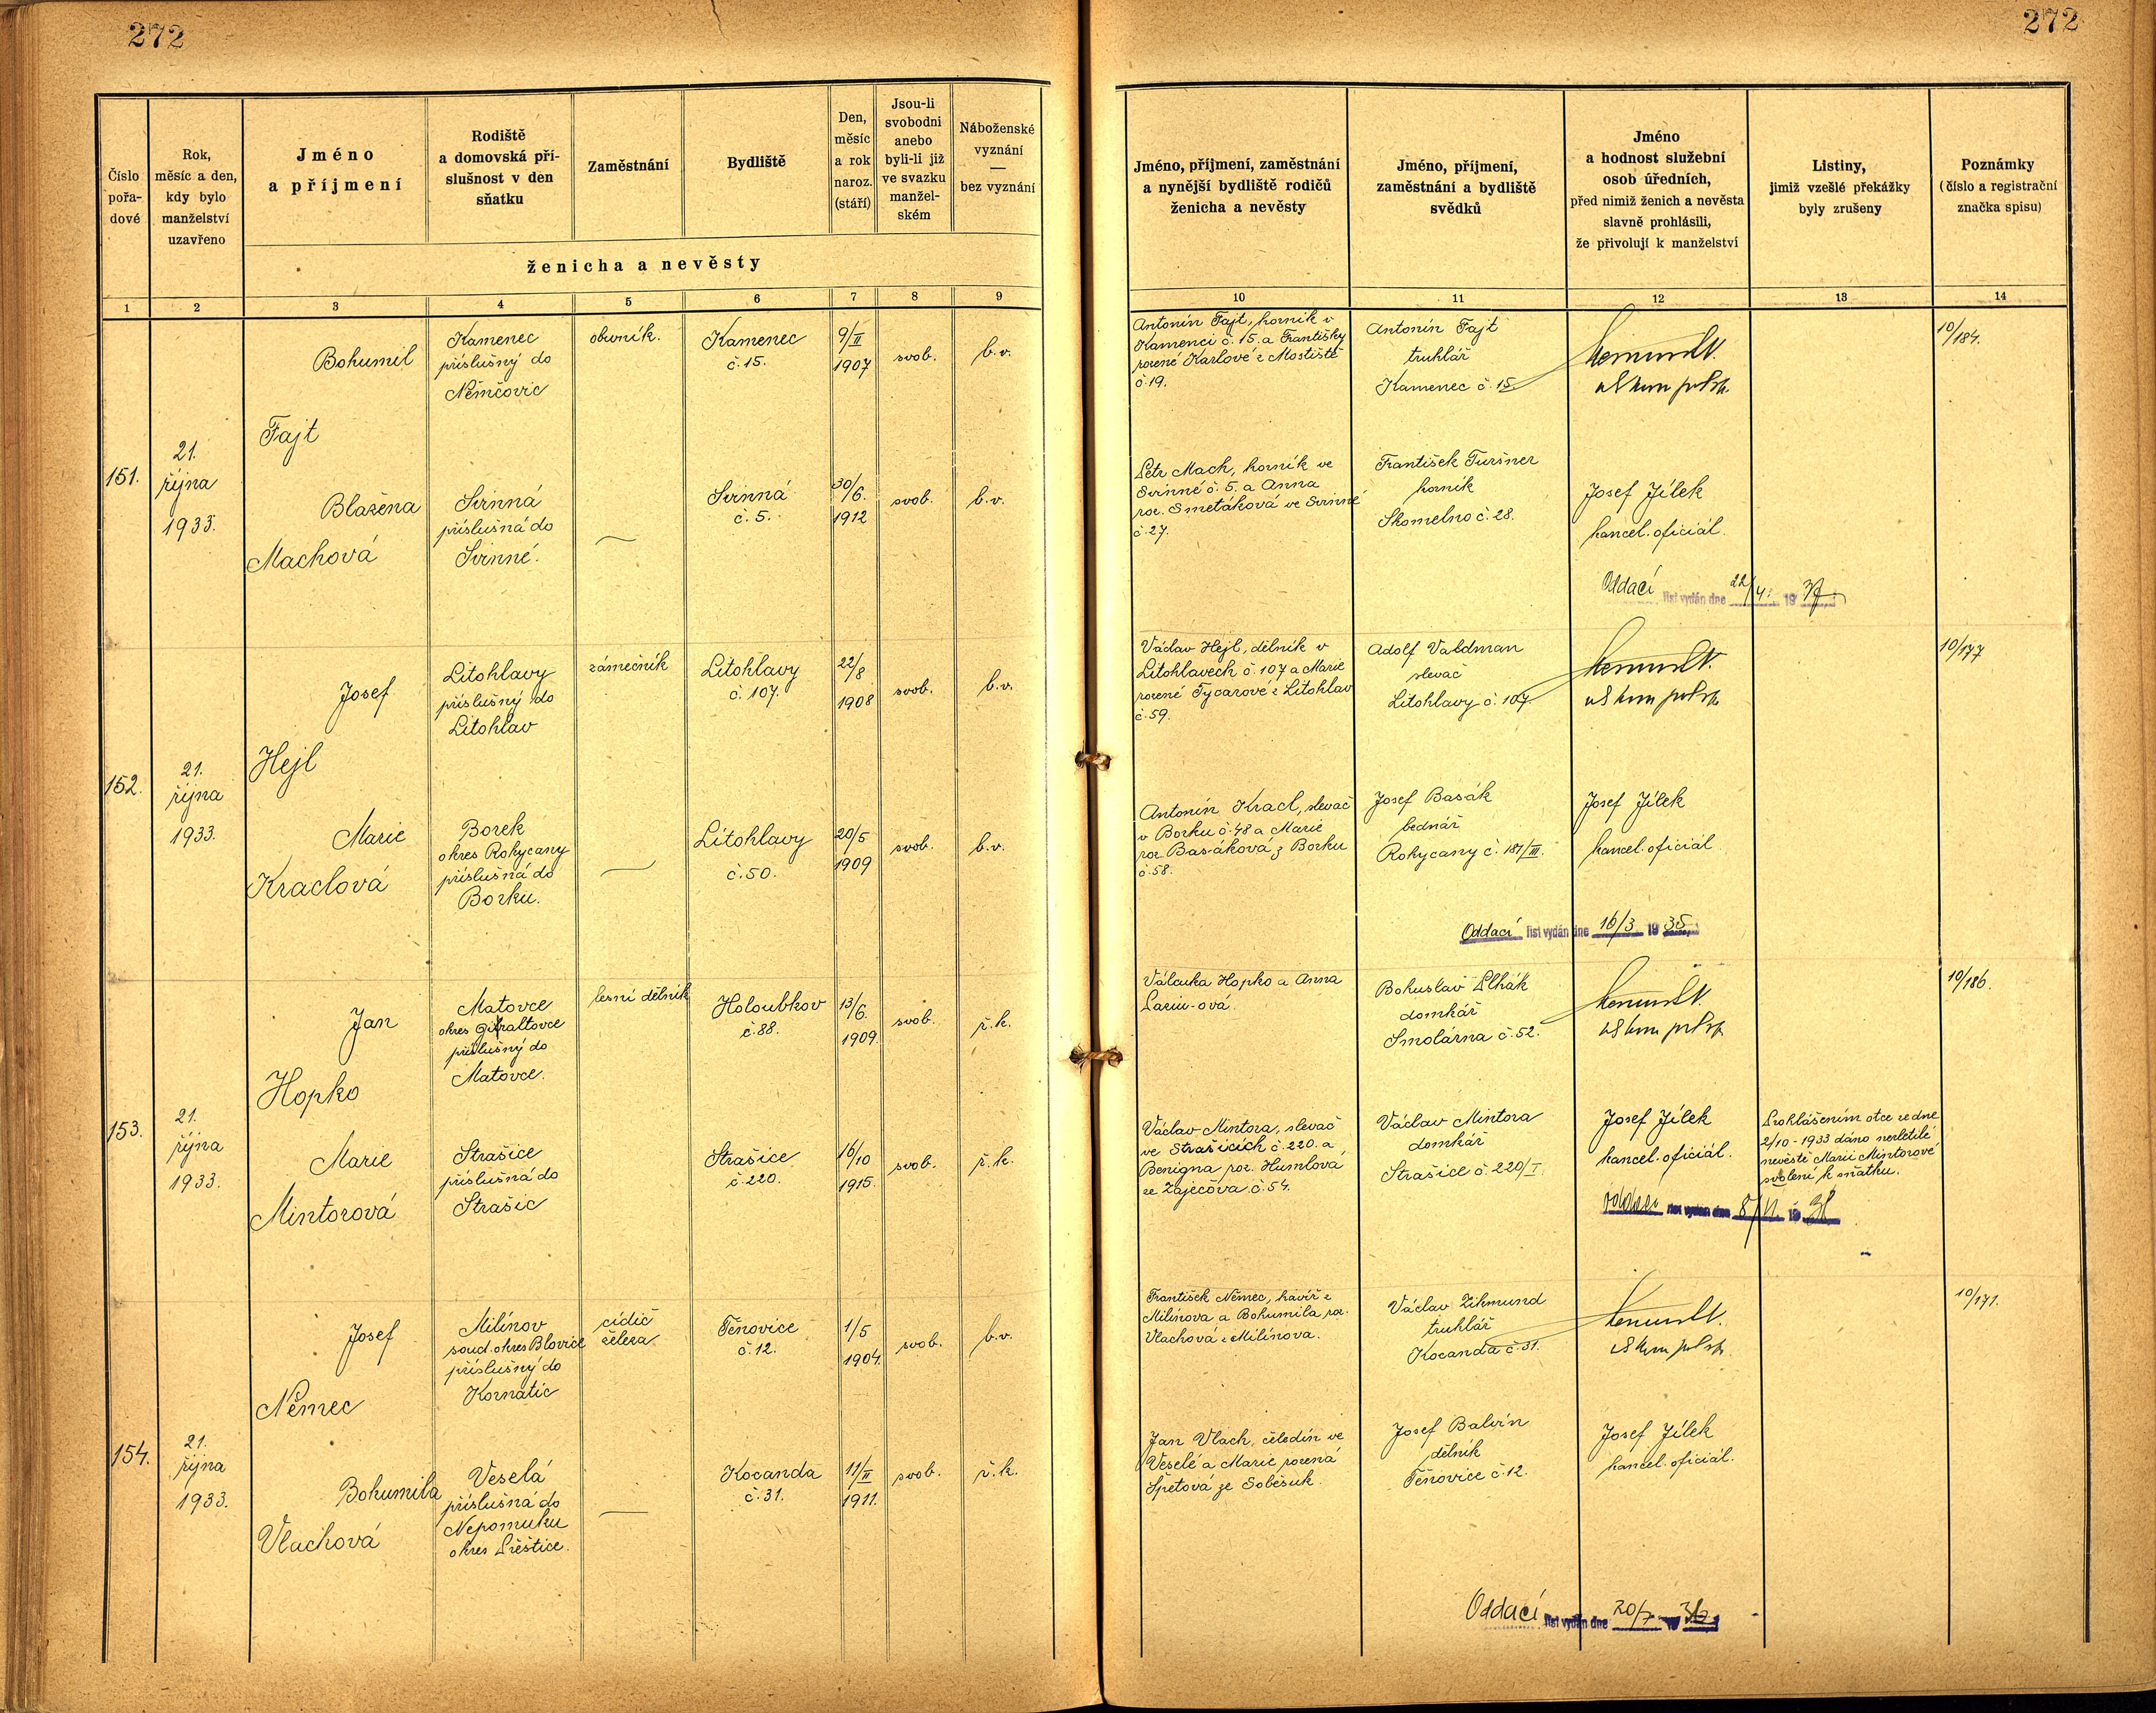 272
272
Číslo
pořa-
dové
Rok,
měsíc a den,
kdy bylo
manželství
uzavřeno
Jméno
a příjmení
Rodiště
a domovská pří-
slušnost v den
sňatku
Zaměstnání
Bydliště
Den,
měsíc
a rok
naroz.
(stáří)
Jsou-li
svobodni
anebo
byli-li již
ve svazku
manžel-
ském
Náboženské
vyznání
—
bez vyznání
ženicha a nevěsty
Jméno, příjmení, zaměstnání
a nynější bydliště rodičů
ženicha a nevěsty
Jméno, příjmení,
zaměstnání a bydliště
svědků
Jméno
a hodnost služební
osob úředních,
před nimiž ženich a nevěsta
slavně prohlásili,
že přivolují k manželství
Listiny,
jimiž vzešlé překážky
byly zrušeny
Poznámky
(číslo a registrační
značka spisu)
1 2 3 4 5 6 7 8 9 10 11 12 13 14
151.
21.
října
1933.
Bohumil
Fajt
Kamenec
příslušný do
Němčovic
obuvník.
Kamenec
č. 15.
9/II
1907
svob.
b.v.
Antonín Fajt, horník v
Kamenci č. 15. a Františky
rozené Karlové z Mostiště
č. 19.
Antonín Fajt
truhlář
Kamenec č. 15.
10/184.
Blažena
Machová
Svinná
příslušná do
Svinné.
Svinná
č. 5.
30/6.
1912
svob.
b.v.
Petr Mach, horník ve
Svinné č. 5. a Anna
roz. Smetáková ve Svinné
č. 27.
František Turšner
horník
Skomelno č. 28.
Josef Jílek
kancel. oficiál.
Oddací list vydán dne 22/4. 1937
152.
21.
října
1933.
Josef
Hejl
Litohlavy
příslušný do
Litohlav
zámečník
Litohlavy
č. 107.
22/8
1908
svob.
b.v.
Václav Hejl, dělník v
Litohlavech č. 107 a Marie
rozené Tycarové z Litohlav
č. 59.
Adolf Valdman
slevač
Litohlavy č. 107.
10/177
Marie
Kraclová
Borek
okres Rokycany
příslušná do
Borku.
Litohlavy
č. 50.
20/5
1909
svob.
b.v.
Antonín Kracl, slevač
v Borku č. 48 a Marie
roz. Basáková z Borku
č. 58.
Josef Basák
bednář
Rokycany č. 187/III.
Josef Jílek
kancel. oficiál
Oddací list vydán dne 16/3 1935.
153.
21.
října
1933.
Jan
Hopko
Matovce
okres Giraltovce
příslušný do
Matovce.
lesní dělník
Holoubkov
č. 88.
13/6.
1909.
svob.
ř.k.
Hopko a Anna
Bohuslav Plhák
domkář
Smolárna č. 52.
10/186.
Marie
Mintorová
Strašice
příslušná do
Strašic
Strašice
č. 220.
16/10
1915.
svob.
ř.k.
Václav Mintora, slevač
ve Strašicích č. 220. a
Benigna roz. Humlová
ze Zaječova č. 54.
Václav Mintora
domkář
Strašice č 220/I.
Josef Jílek
kancel. oficiál.
Prohlášením otce ze dne
2/10 - 1933 dáno nezletilé
nevěstě Marii Mintorové
svolení k sňatku.
Oddací list vydán dne 8/11. 19
154.
21.
října
1933.
Josef
Němec
Milínov
soud. okres Blovice
příslušný do
Kornatic
cídič
železa
Těnovice
č. 12.
1/5
1904.
svob.
b.v.
František Němec, havíř z
Milínova a Bohumila roz.
Vlachová z Milínova.
Václav Zikmund
truhlář
Kocanda č. 31.
10/171.
Bohumila
Vlachová
Veselá
příslušná do
Nepomuku
okres Přeštice.
Kocanda
č. 31.
11/II
1911.
svob.
ř.k.
Jan Vlach, čeledín ve
Veselé a Marie rozená
Špetová ze Soběsuk.
Josef Balvín
dělník
Těňovice č. 12.
Josef Jílek
kancel. oficiál.
Oddací list vydán dne 20/7. 19